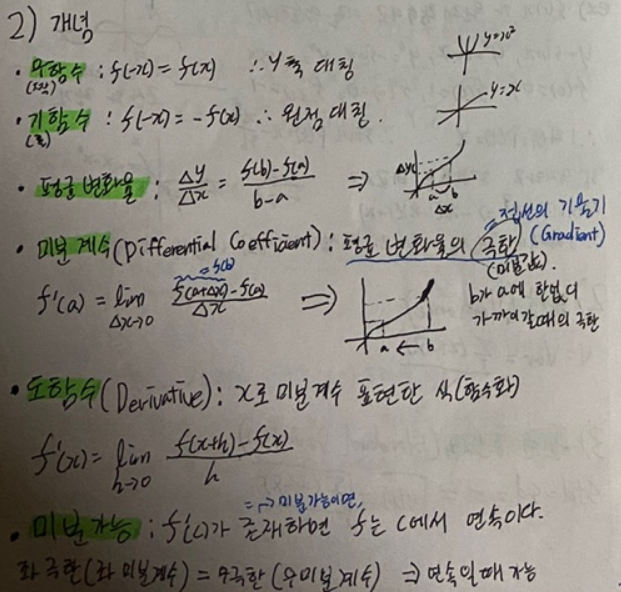 2) 개념
• 우함수 : f(-x) = f(x) ∴ y축 대칭 y=x²
(짝)
• 기함수 : f(-x) = -f(x) ∴ 원점 대칭. y=x
(홀)
• 평균 변화율 : Δy/Δx = f(b)-f(a)/b-a ⇒ Δy a b Δx
= 접선의 기울기
• 미분 계수(Differential Coefficient) : 평균 변화율의 극한 (Gradient)
(미분값).
= f(b)
f'(a) = lim Δx→0 f(a+Δx)-f(a)/Δx ⇒ a ← b
b가 a에 한없이
가까이 갈때의 극한
• 도함수(Derivative) : x로 미분계수 표현한 식(함수화)
f'(x) = lim h→0 f(x+h)-f(x)/h
= → 미분가능이면,
• 미분가능 : f'(c)가 존재하면 f는 c에서 연속이다.
좌극한(좌미분계수) = 우극한(우미분계수) ⇒ 연속일때 가능